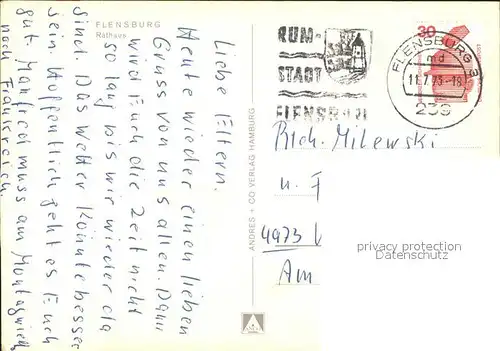 FLENSBURG
Rathaus
Liebe Eltern.
Heute wieder einen lieben
Gruss von uns allen. Dann
wird Euch die Zeit nicht
so lang bis wir wieder da
sind. Das Wetter könnte besser
sein. Hoffentlich geht es Euch
gut. Manfred muss am Montag wieder
nach Frankreich.
ANDRES + CO VERLAG HAMBURG
RUM-
STADT
FLENSBURG
30
FLENSBURG
md
11.7.73-18
239
Rich. Milewski
u. F
4973 V
Am
privacy protection
Datenschutz